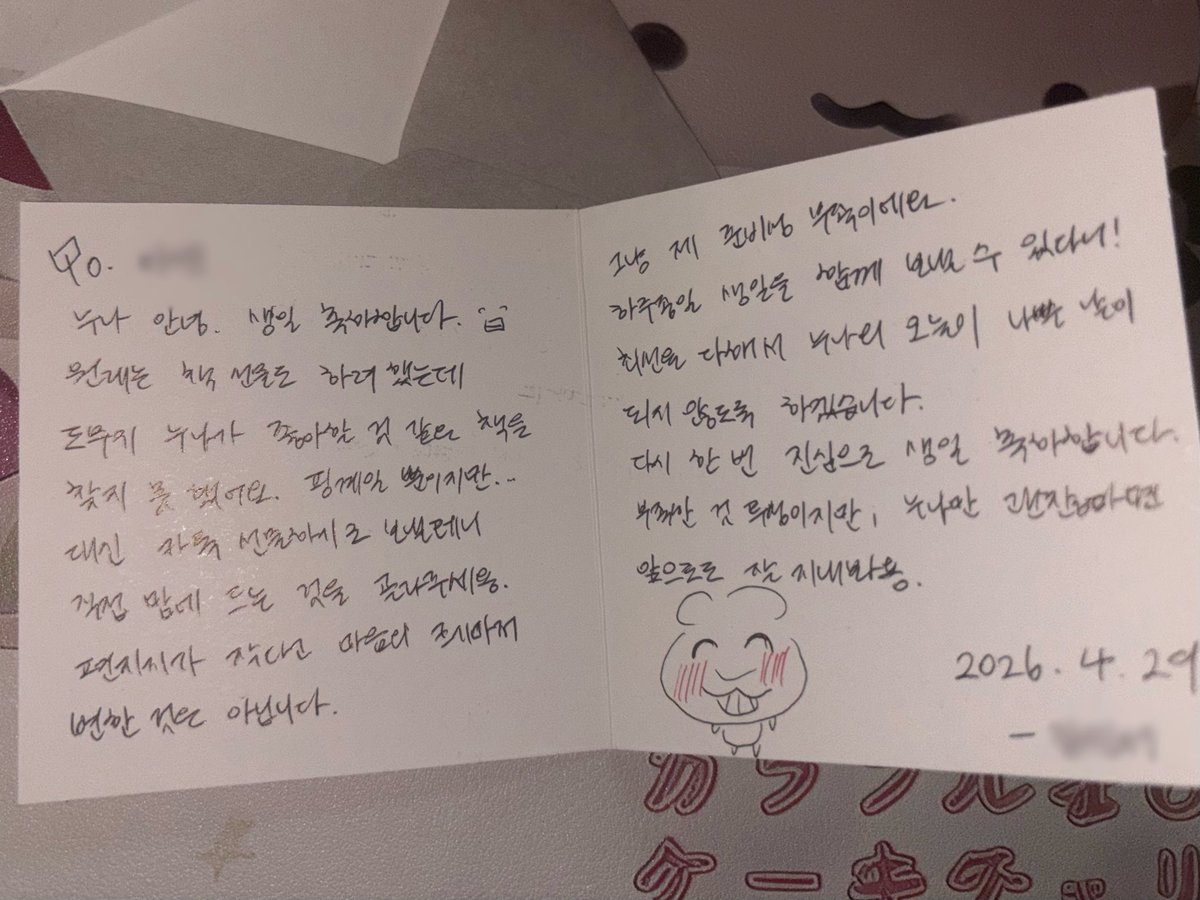 To.
누나 안녕. 생일 축하합니다.
원래는 책 선물도 하려 했는데
도무지 누나가 좋아할 것 같은 책을
찾지 못 했어요. 핑계일 뿐이지만...
대신 카톡 선물하기로 보낼테니
직접 맘에 드는 것을 골라주세용.
편지지가 작다고 마음의 크기마저
변한 것은 아닙니다.
그냥 제 준비성 부족이에요.
하루종일 생일을 함께 보낼 수 있다니!
최선을 다해서 누나의 오늘이 나쁜 날이
되지 않도록 하겠습니다.
다시 한 번 진심으로 생일 축하합니다.
부족한 것 투성이지만, 누나만 괜찮다면
앞으로도 잘 지내봐용.
2026. 4. 29
-
ケーキ